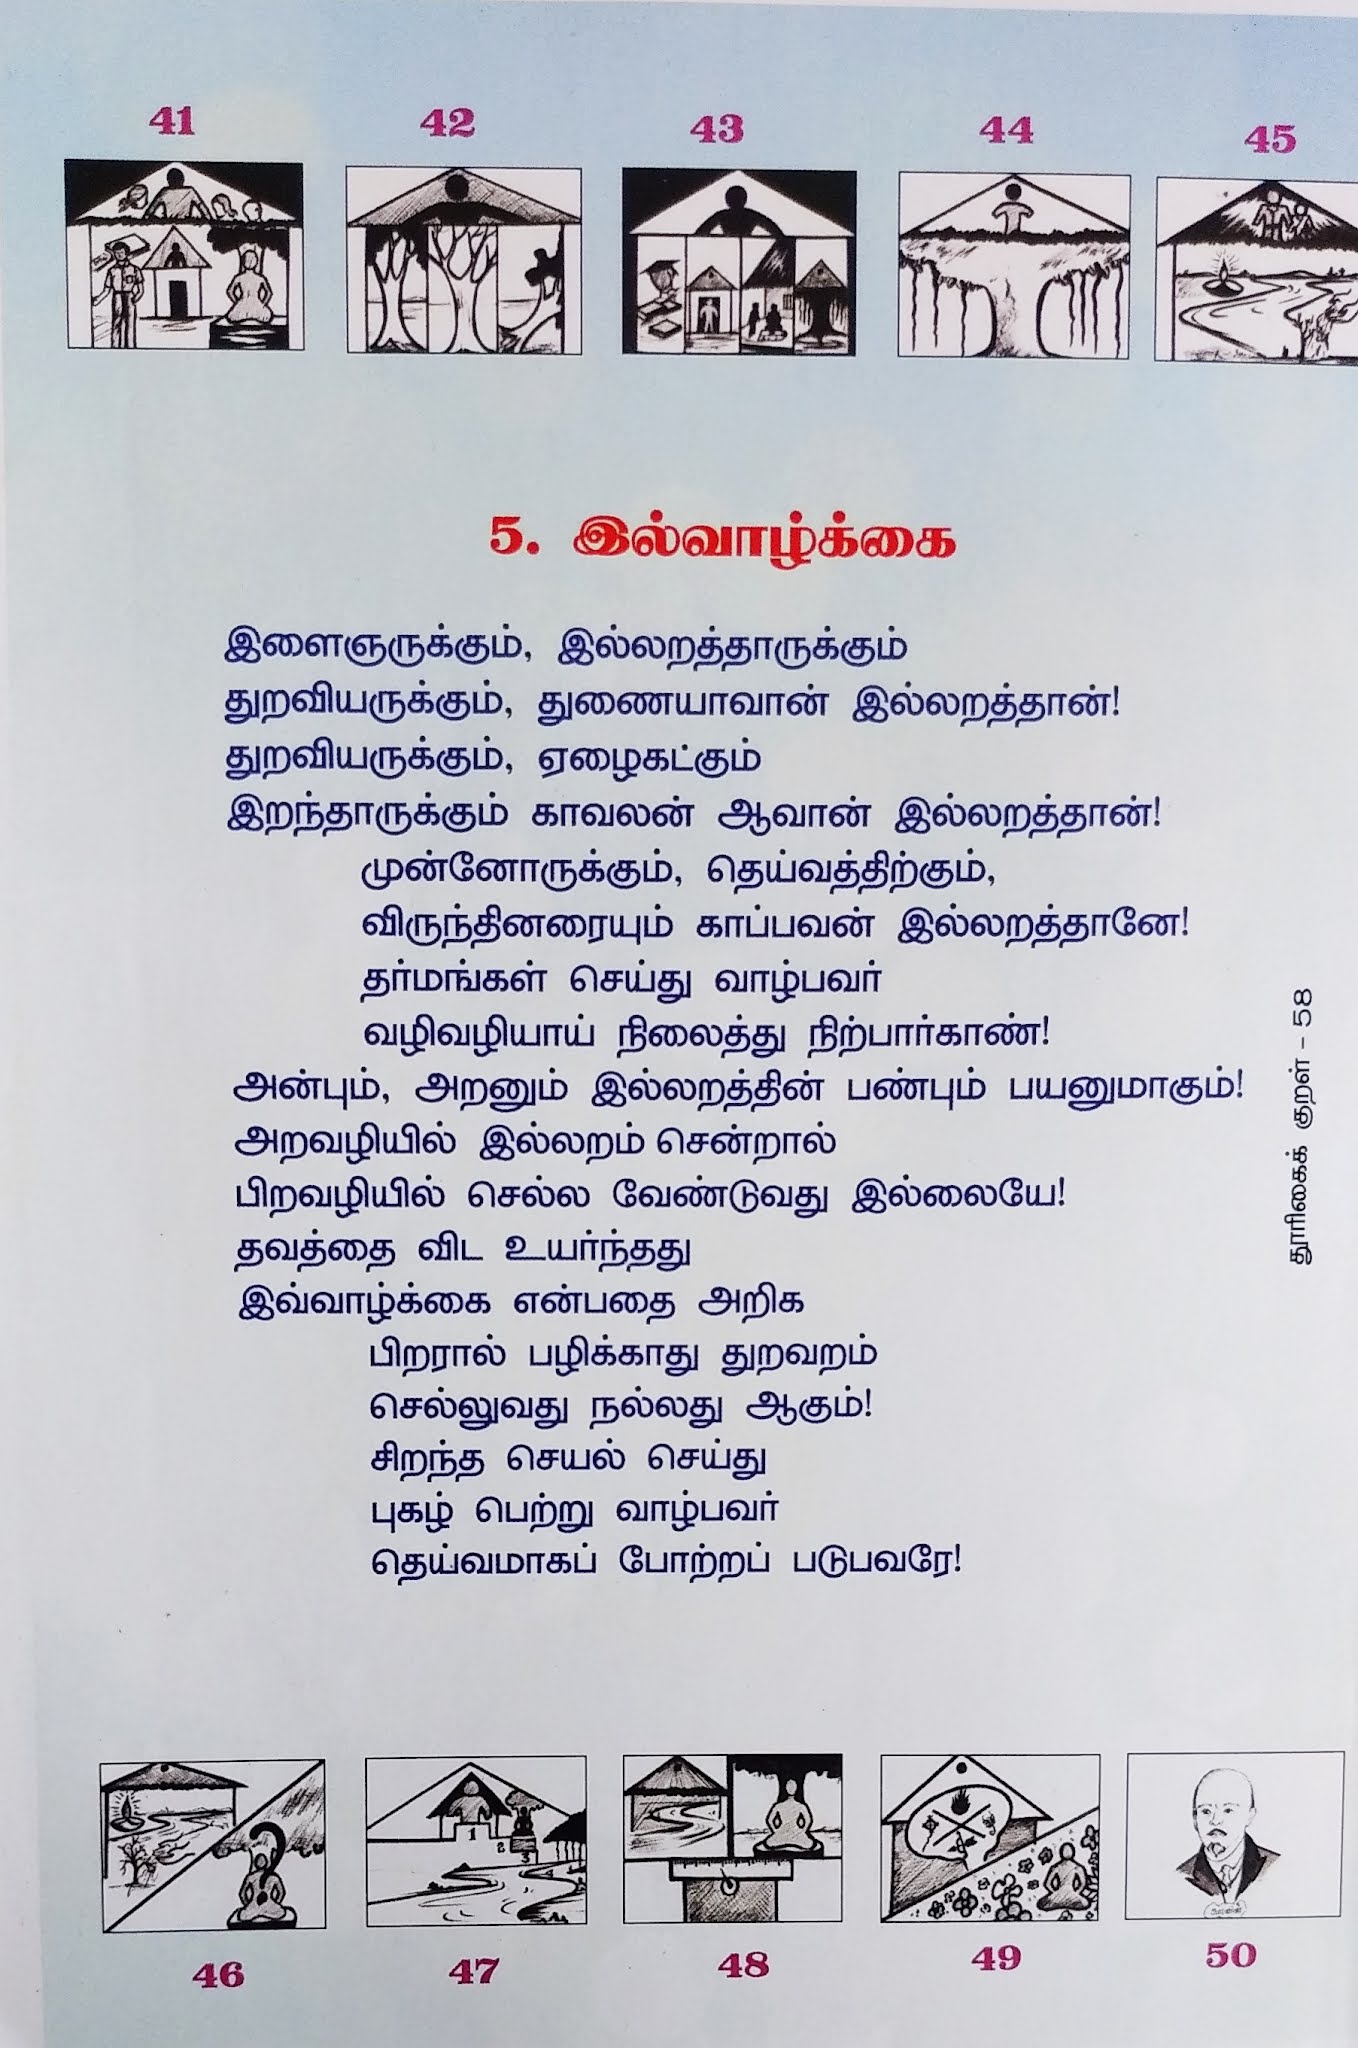 41 42 43 44 45
5. இல்வாழ்க்கை
இளைஞருக்கும், இல்லறத்தாருக்கும்
துறவியருக்கும், துணையாவான் இல்லறத்தான்!
துறவியருக்கும், ஏழைகட்கும்
இறந்தாருக்கும் காவலன் ஆவான் இல்லறத்தான்!
முன்னோருக்கும், தெய்வத்திற்கும்,
விருந்தினரையும் காப்பவன் இல்லறத்தானே!
தர்மங்கள் செய்து வாழ்பவர்
வழிவழியாய் நிலைத்து நிற்பார்காண்!
அன்பும், அறனும் இல்லறத்தின் பண்பும் பயனுமாகும்!
அறவழியில் இல்லறம் சென்றால்
பிறவழியில் செல்ல வேண்டுவது இல்லையே!
தவத்தை விட உயர்ந்தது
இவ்வாழ்க்கை என்பதை அறிக
பிறரால் பழிக்காது துறவறம்
செல்லுவது நல்லது ஆகும்!
சிறந்த செயல் செய்து
புகழ் பெற்று வாழ்பவர்
தெய்வமாகப் போற்றப் படுபவரே!
தூரிகைக் குறள் - 58
1
2
3
46 47 48 49 50